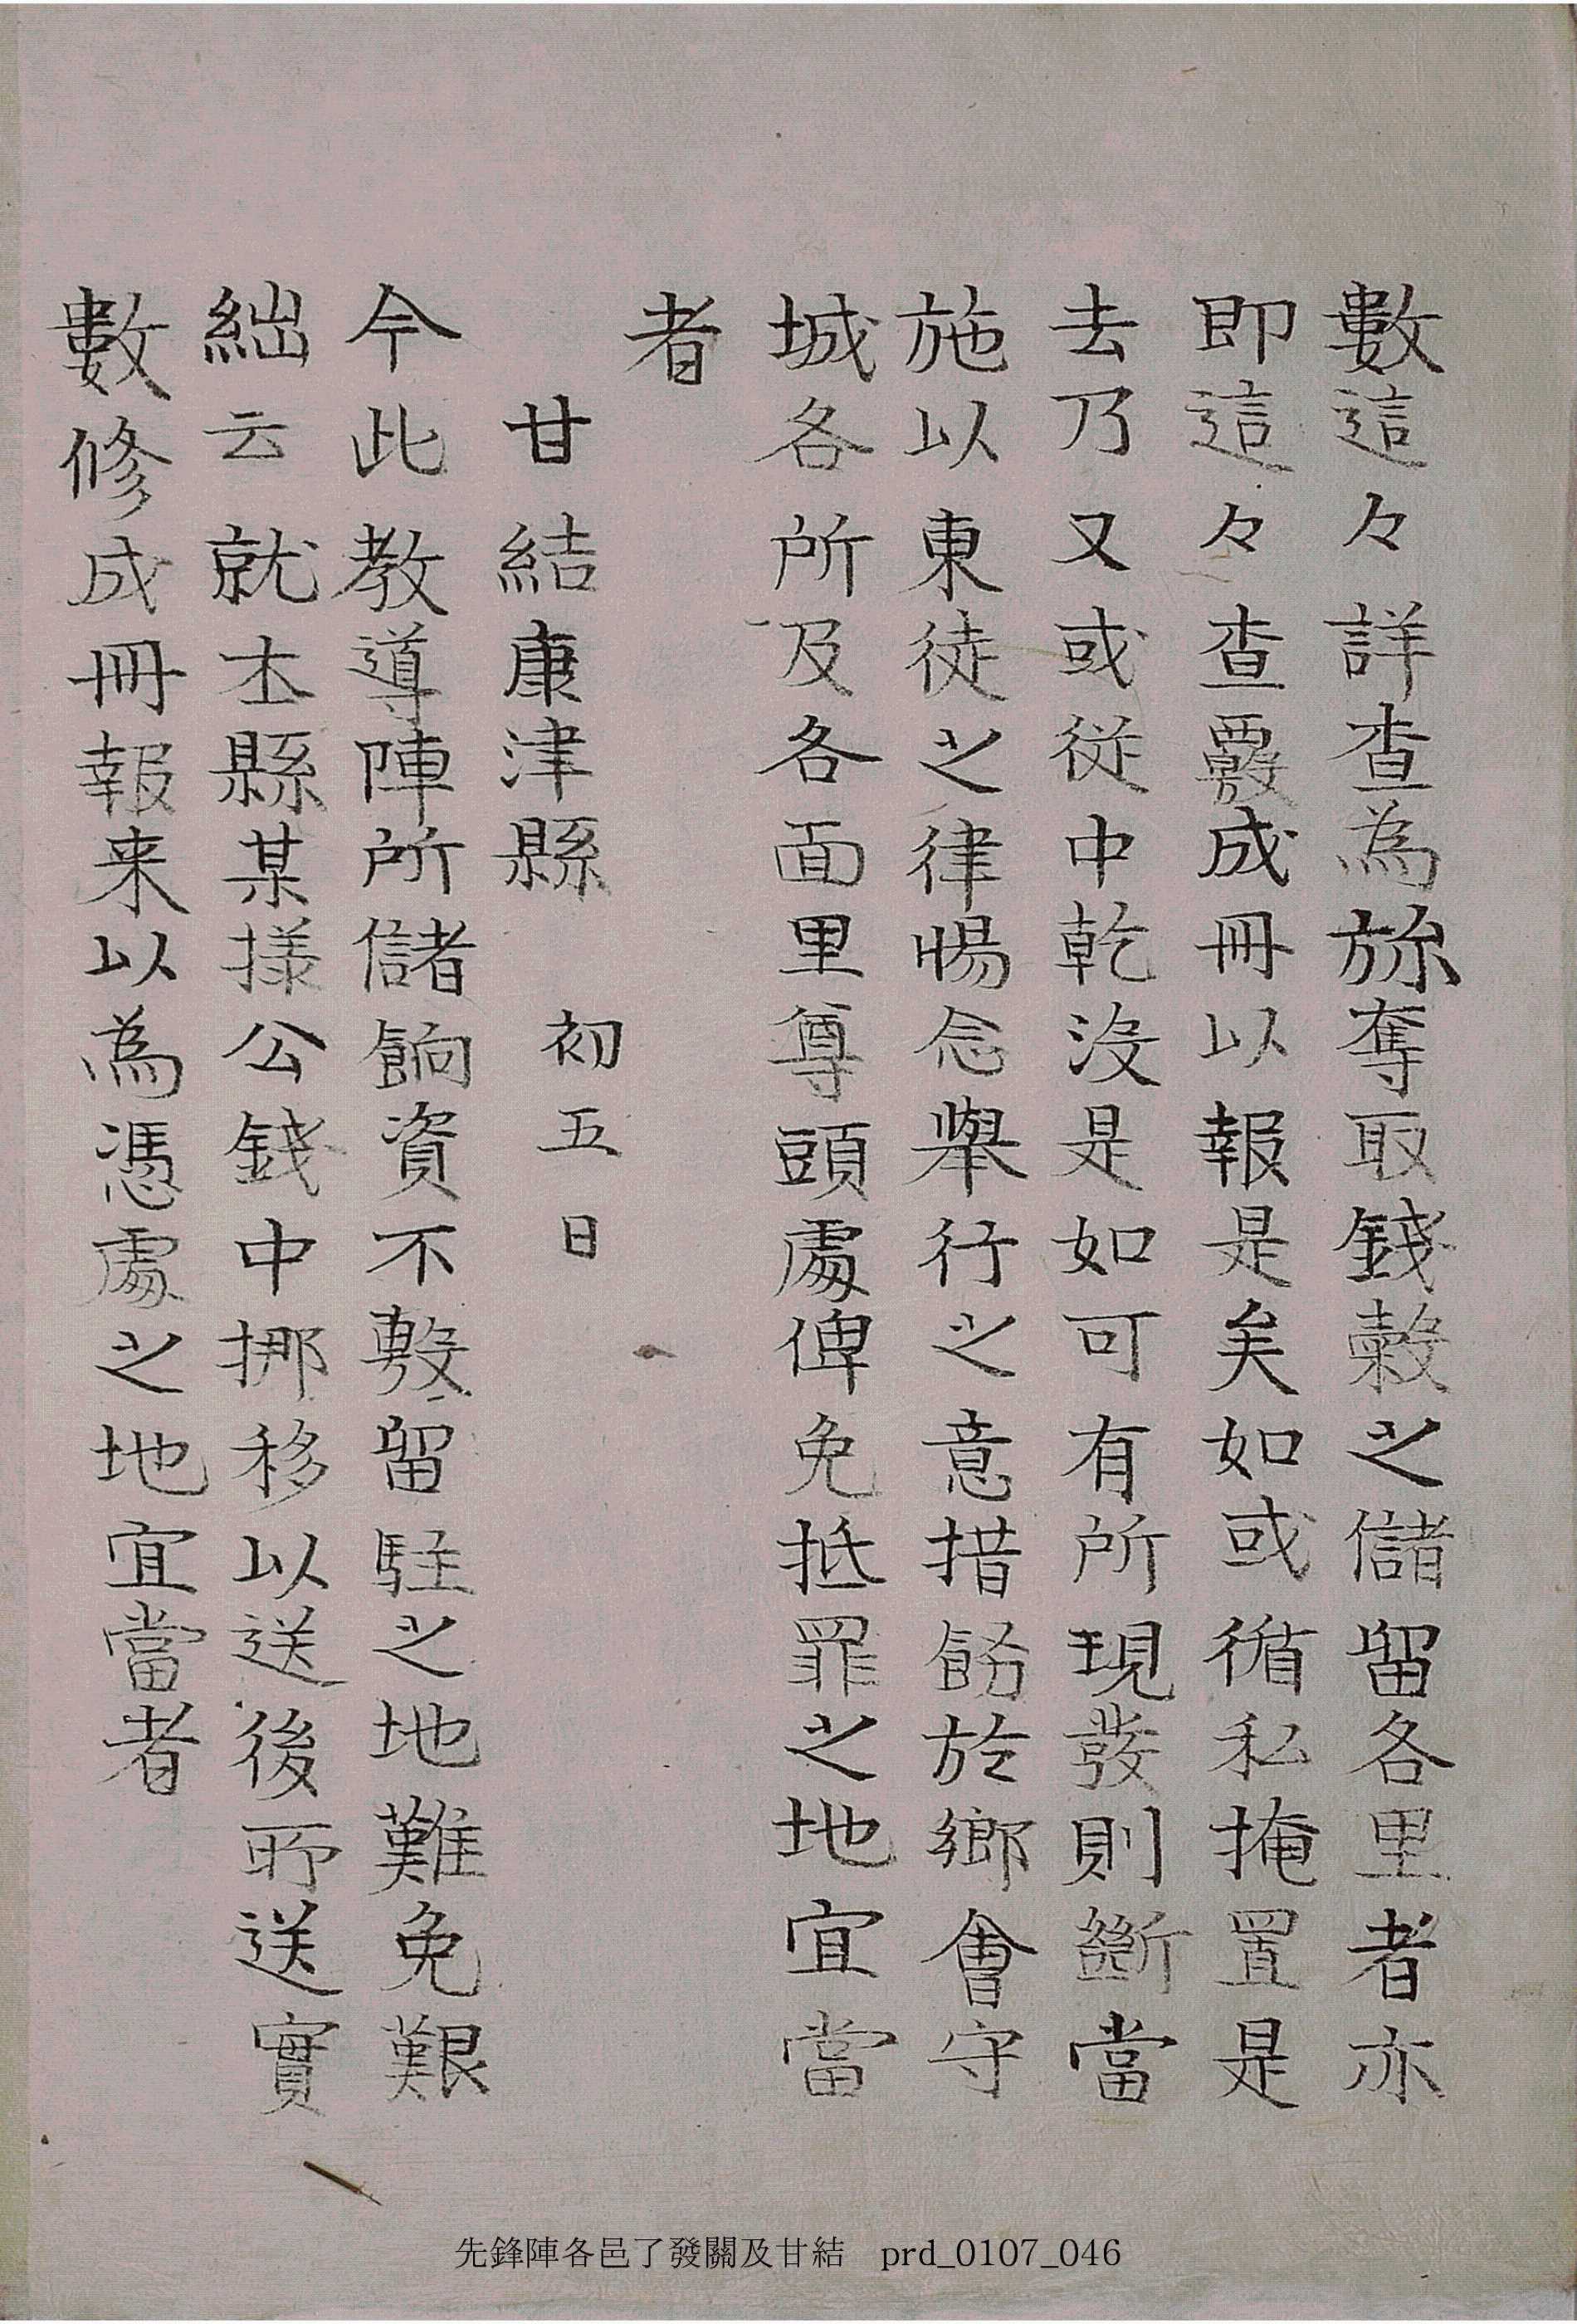 數這々詳查為旀奪取錢糓之儲留各里者亦
即這々查覈成冊以報是矣如或循私掩置是
去乃又或從中乾没是如可有所現發則斷當
施以東徒之律惕念舉行之意措飭於鄉會守
城各所及各面里尊頭處俾免抵罪之地宜當
者
甘結康津縣 初五日
今此教導陣所儲餉資不敷留駐之地難免艱
絀云就本縣某様公錢中挪移以送後所送實
數修成冊報来以為憑處之地宜當者
先鋒陣各邑了發關及甘結 prd_0107_046